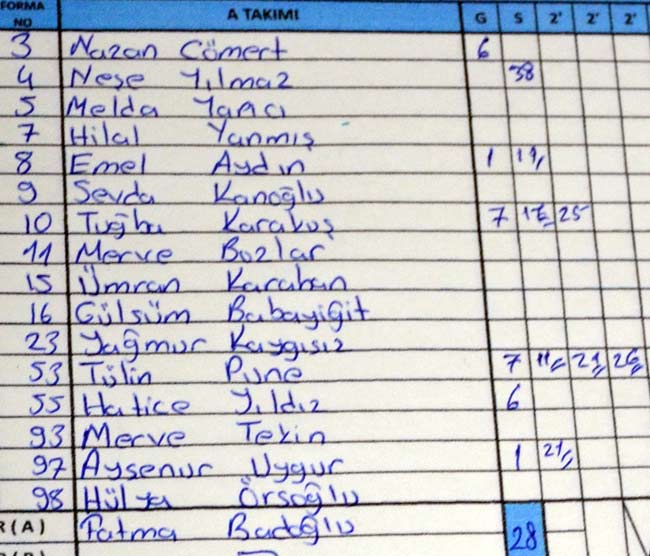 FORMA NO A TAKIMI G S 2' 2' 2'
3 Nazan Cömert 6
4 Neşe Yılmaz 38
5 Melda
7 Hilal Yanmış
8 Emel Aydın 1
9 Sevda Kanoğlu
10 Tuğba Karakuş 7 25
11 Merve Bozlar
15 Ümran Karahan
16 Gülsüm Babayiğit
23 Yağmur Kaygısız
53 Tülin Pune 7
55 Hatice Yıldız 6
93 Merve Tekin
97 Aysenur Uygur 1
98 Hülya
R (A) Fatma 28